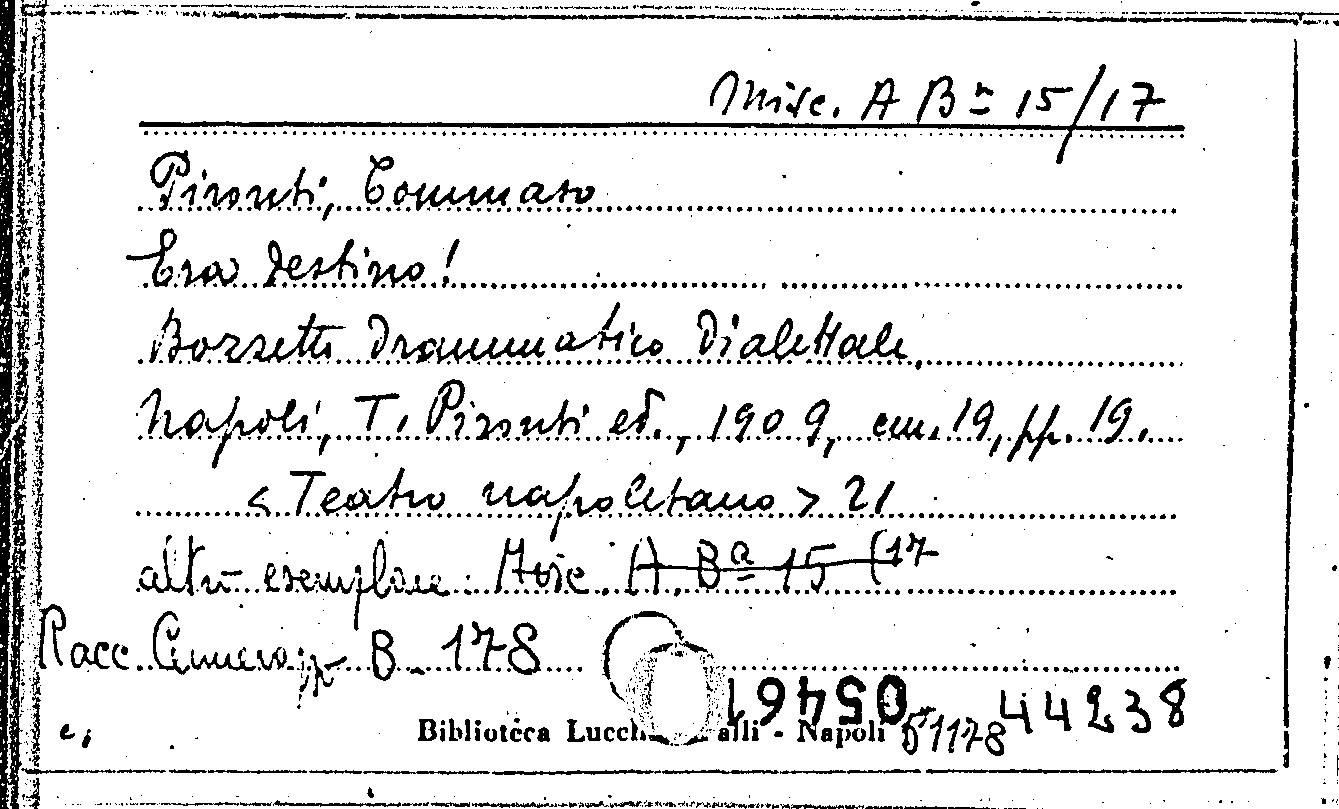 Misc. A Bª 15/17
Pironti, Tommaso
Era destino!
Bozzetto drammatico dialettale,
Napoli, T. Pironti ed., 1909, cm. 19, pp. 19.
< Teatro napoletano > 21
altro esemplare: Misc. A. Bª 15 (17
Racc. B. 178
050461 44238
Biblioteca Lucch alli - Napoli 51178